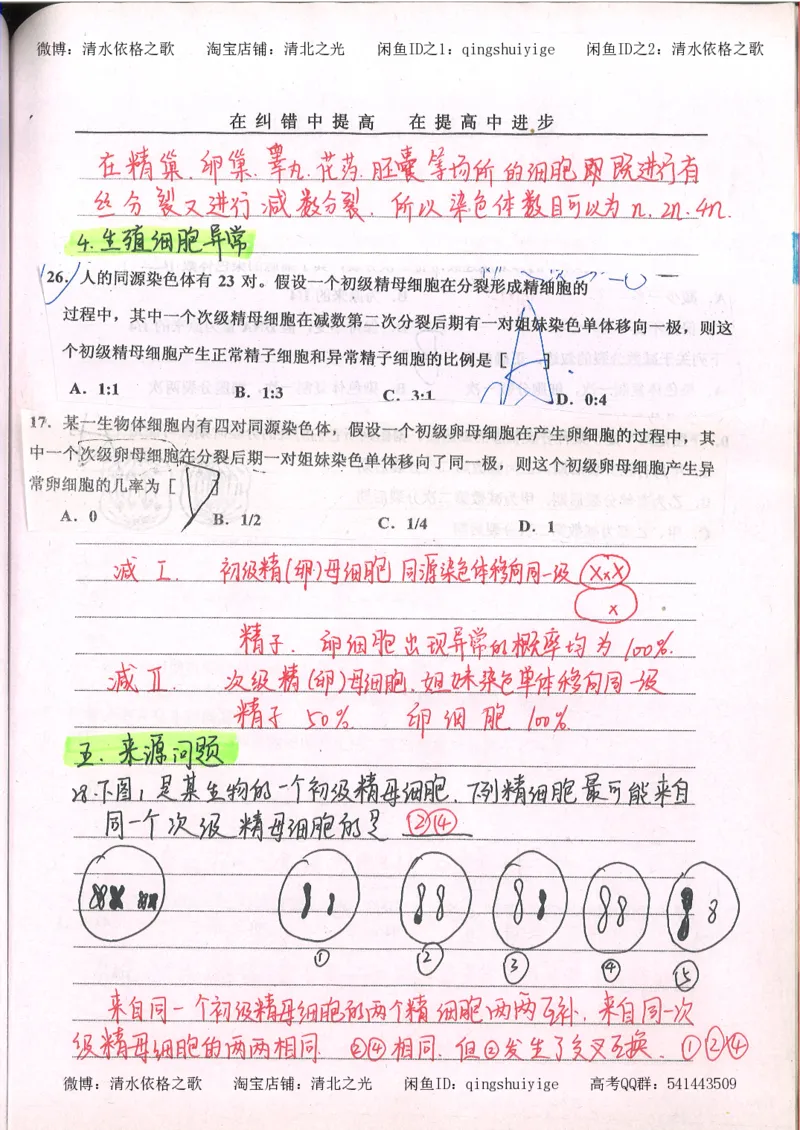 微博：清水依格之歌 淘宝店铺：清北之光 闲鱼ID之1：qingshuiyige 闲鱼ID之2：清水依格之歌
在纠错中提高 在提高中进步
在精巢、卵巢、睾丸、花药、胚囊等场所的细胞即既进行有
丝分裂又进行减数分裂．所以染色体数目可以为n．2n．4n．
4.生殖细胞异常
26．人的同源染色体有 23 对。假设一个初级精母细胞在分裂形成精细胞的
过程中，其中一个次级精母细胞在减数第二次分裂后期有一对姐妹染色单体移向一极，则这
个初级精母细胞产生正常精子细胞和异常精子细胞的比例是［A］
A．1:1 B．1:3 C．3:1 D．0:4
17．某一生物体细胞内有四对同源染色体，假设一个初级卵母细胞在产生卵细胞的过程中，其
中一个次级卵母细胞在分裂后期一对姐妹染色单体移向了同一极，则这个初级卵母细胞产生异
常卵细胞的几率为［D］
A．0 B．1/2 C．1/4 D．1
减Ⅰ． 初级精(卵)母细胞 同源染色体移向同一级
精子．卵细胞出现异常的概率均为100%．
减Ⅱ． 次级精(卵)母细胞．姐妹染色单体移向同一级
精子 50% 卵细胞 100%
五．来源问题
28.下图1是某生物的一个初级精母细胞．下列精细胞最可能来自
同一个次级精母细胞的是 ②④
① ② ③ ④ ⑤
来自同一个初级精母细胞的两个精细胞两两互补．来自同一次
级精母细胞的两两相同．②④相同．但②发生了交叉互换．①②④
微博：清水依格之歌 淘宝店铺：清北之光 闲鱼ID：qingshuiyige 高考QQ群：541443509